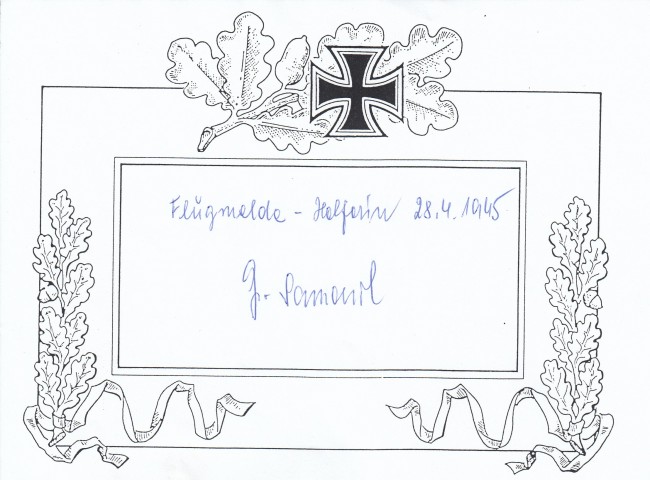 Flugmelde - Helferin 28.4.1945
G.